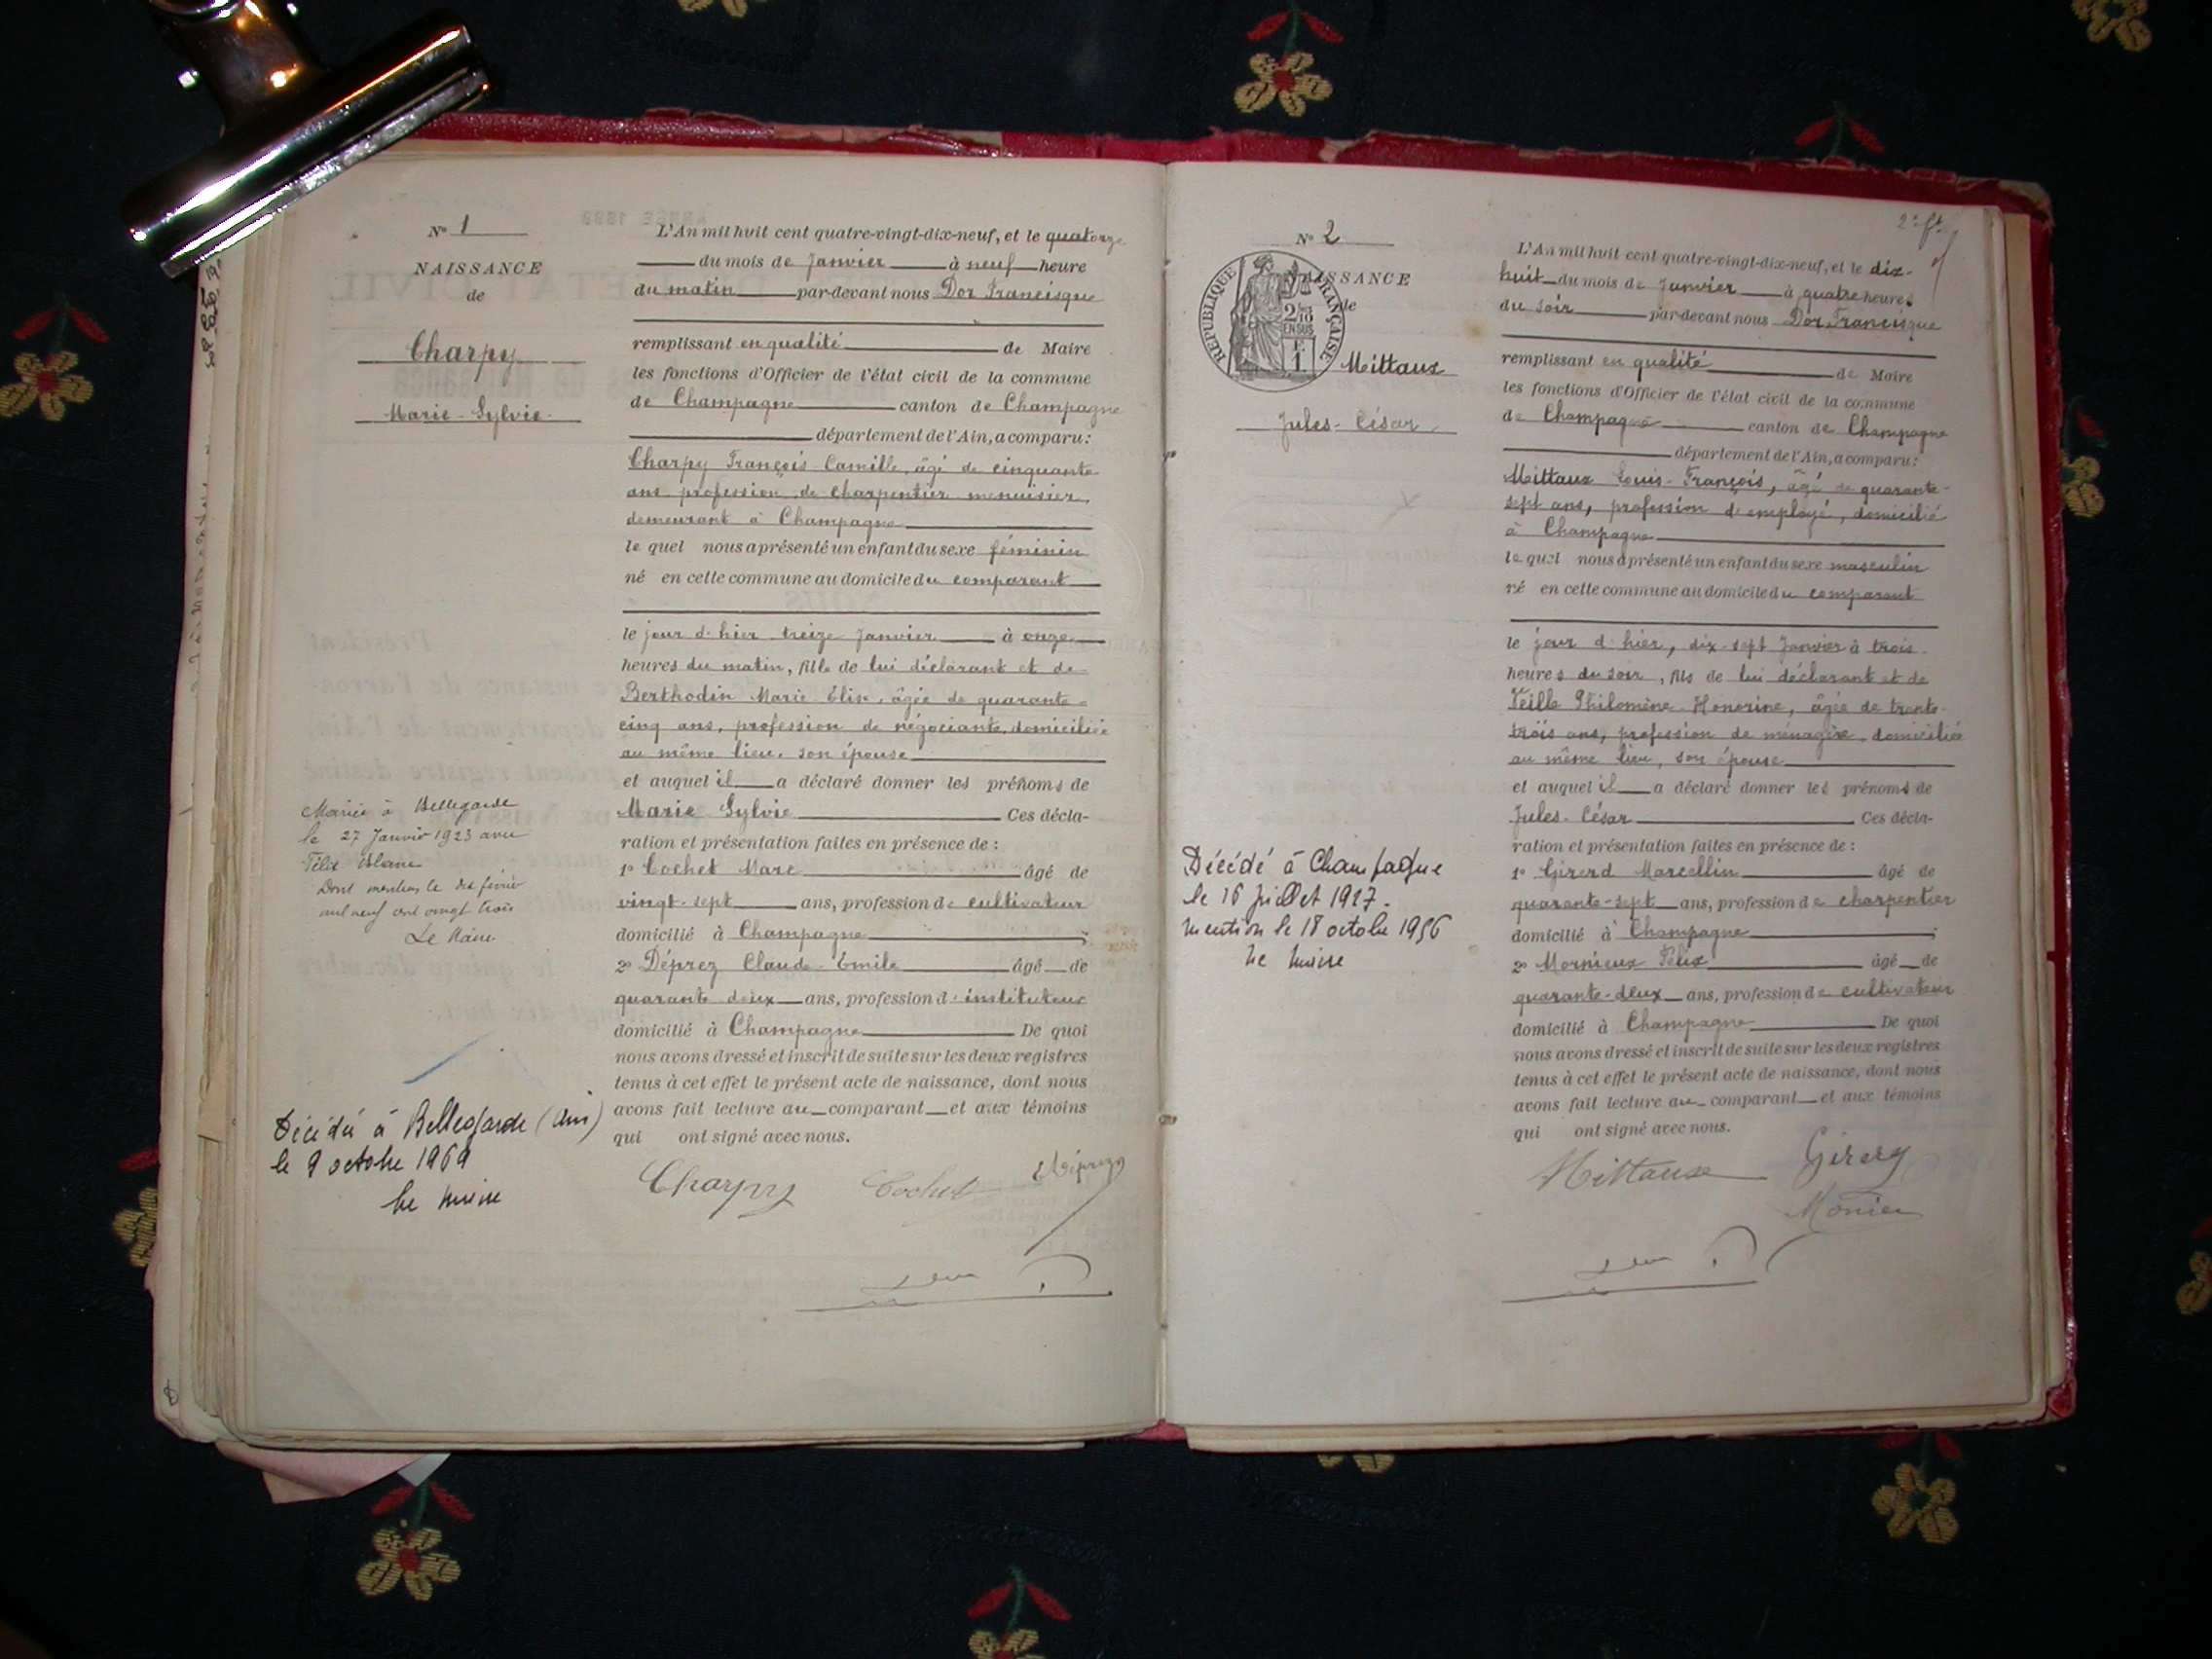 Nº 1
NAISSANCE
de
Charpy
Marie-Sylvie
L'An mil huit cent quatre-vingt-dix-neuf, et le quatorze
du mois de Janvier à neuf heure
du matin par-devant nous Dor Francisque
remplissant en qualité de Maire
les fonctions d'Officier de l'état civil de la commune
de Champagne canton de Champagne
département de l'Ain, a comparu:
Charpy François Camille, âgé de cinquante
ans profession de charpentier menuisier,
demeurant à Champagne
le quel nous a présenté un enfant du sexe féminin
né en cette commune au domicile du comparant
le jour d'hier treize Janvier à onze
heures du matin, fille de lui déclarant et de
Berthodin Marie Elise, âgée de quarante-
cinq ans, profession de négociante, domiciliée
au même lieu, son épouse
et auquel il a déclaré donner les prénoms de
Marie Sylvie Ces décla-
ration et présentation faites en présence de :
1º Cochet Marc âgé de
vingt-sept ans, profession de cultivateur
domicilié à Champagne ;
2º Déprez Claude-Emile âgé de
quarante deux ans, profession d'instituteur
domicilié à Champagne De quoi
nous avons dressé et inscrit de suite sur les deux registres
tenus à cet effet le présent acte de naissance, dont nous
avons fait lecture au comparant et aux témoins
qui ont signé avec nous.
Charpy Cochet Déprez
Mariée à Bellegarde
le 27 Janvier 1923 avec
Félix Blanc
Dont mention le dix février
mil neuf cent vingt trois
Le Maire
Décédée à Bellegarde (Ain)
le 9 octobre 1969
Le Maire
2e ft
Nº 2
NAISSANCE
de
RÉPUBLIQUE FRANÇAISE
2/10
EN SUS
F.
1
Mittaux
Jules-César
L'An mil huit cent quatre-vingt-dix-neuf, et le dix-
huit du mois de Janvier à quatre heures
du soir par-devant nous Dor Francisque
remplissant en qualité de Maire
les fonctions d'Officier de l'état civil de la commune
de Champagne canton de Champagne
département de l'Ain, a comparu:
Mittaux Louis-François, âgé de quarante-
sept ans, profession d'employé, domicilié
à Champagne
le quel nous a présenté un enfant du sexe masculin
né en cette commune au domicile du comparant
le jour d'hier, dix-sept Janvier à trois
heures du soir, fils de lui déclarant et de
Veille Philomène-Honorine, âgée de trente-
trois ans, profession de ménagère domiciliée
au même lieu, son épouse
et auquel il a déclaré donner les prénoms de
Jules-César Ces décla-
ration et présentation faites en présence de :
1º Girerd Marcellin âgé de
quarante-sept ans, profession de charpentier
domicilié à Champagne ;
2º Mornieux Félix âgé de
quarante-deux ans, profession de cultivateur
domicilié à Champagne De quoi
nous avons dressé et inscrit de suite sur les deux registres
tenus à cet effet le présent acte de naissance, dont nous
avons fait lecture au comparant et aux témoins
qui ont signé avec nous.
Mittaux Girerd
Décédé à Champagne
le 16 juillet 1917.
mention le 18 octobre 1956
Le Maire